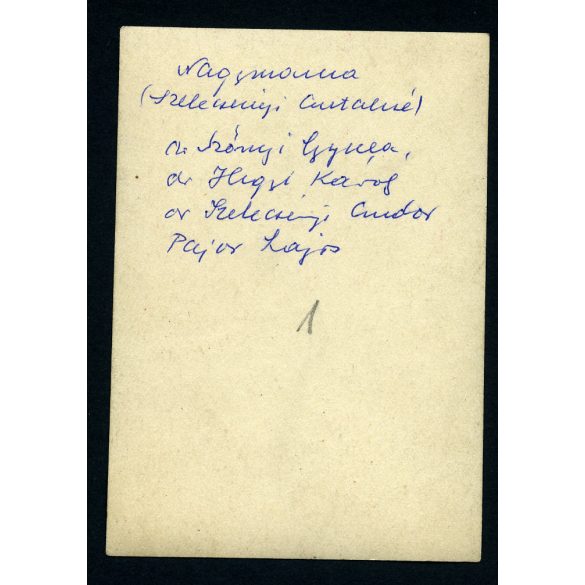 Nagymama
(Szelecsényi Antalné)
dr Szőnyi Gyula,
dr Hegyi Károly
dr Szelecsényi Andor
Pajor Lajos
1